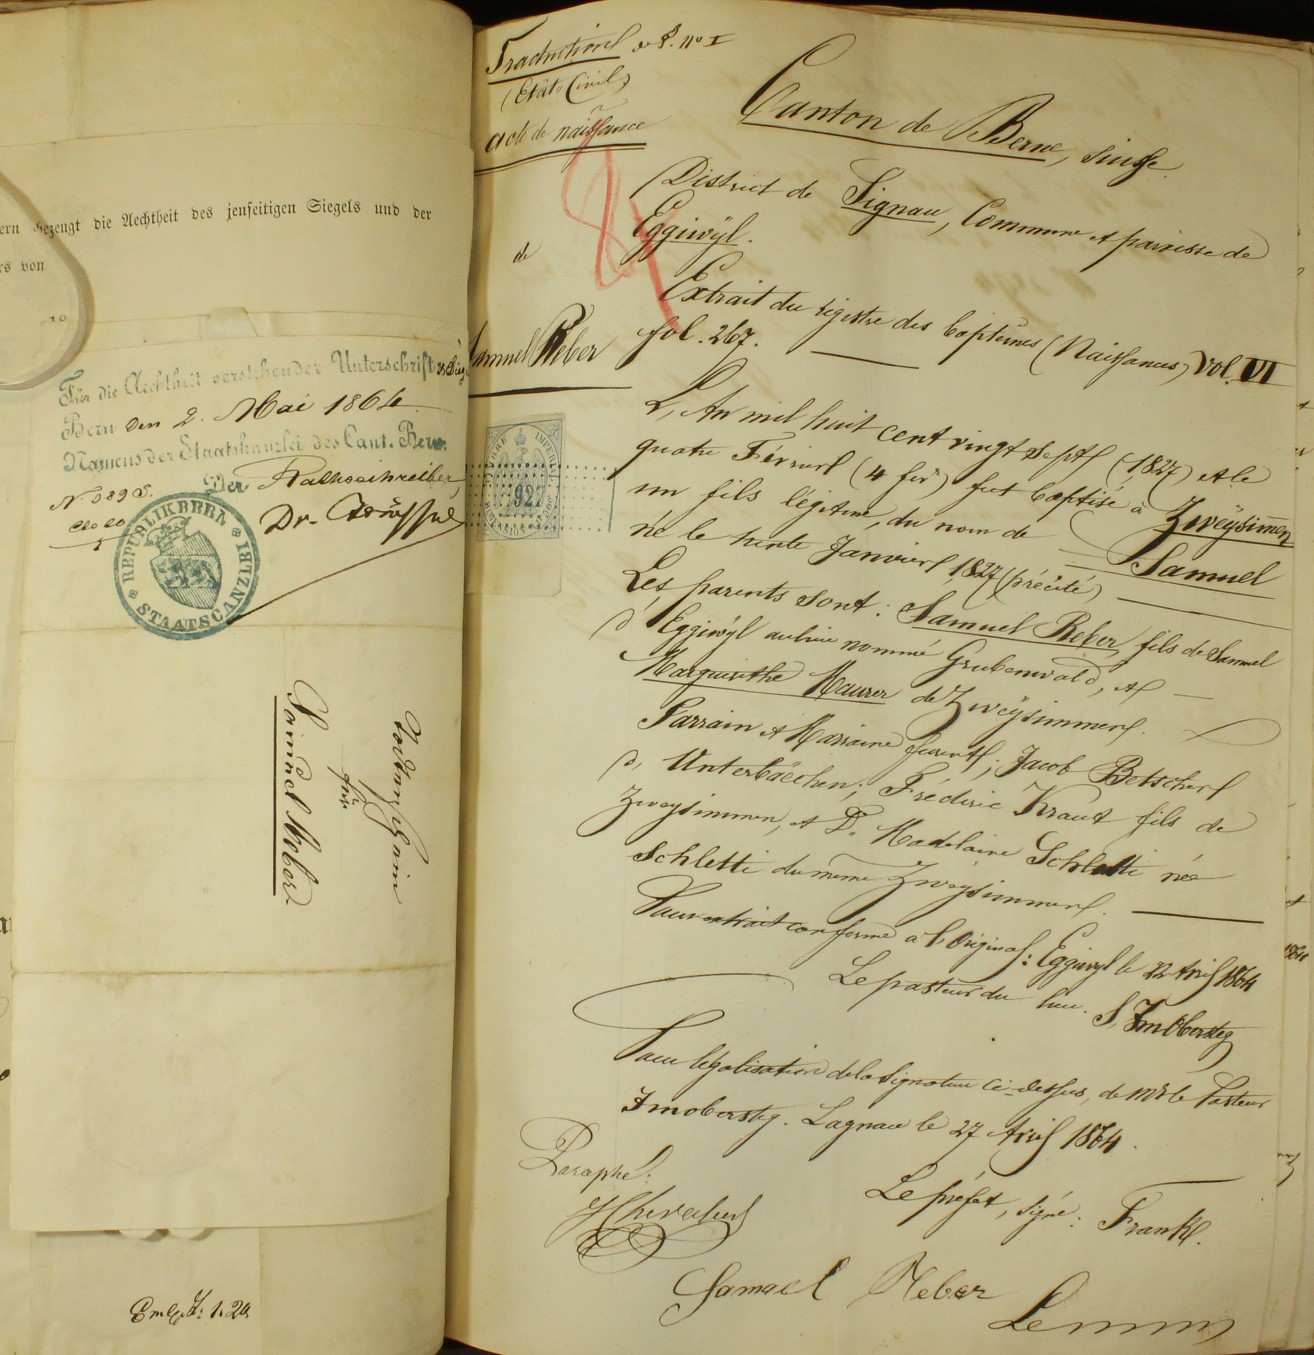 ern bezeugt die Aechtheit des jenseitigen Siegels und der
rs von
Für die Aechtheit vorstehender Unterschrift
Bern den 2. Mai 1864
Namens der Staatskanzlei des Cant. Bern.
Der Rathsschreiber,
Dr.
REPUBLIK BERN
STAATSCANZLEI
Taufschein
für
Samuel Reber.
Traduction de P. No I
(Etat Civil)
acte de naissance
de
Samuel Reber
927
Canton de Berne, Suisse.
District de Signau, Commune et paroisse de
Eggiwÿl.
Extrait du régistre des baptêmes (Naissances) Vol. VI
fol. 267.
L'An mil huit cent vingt sept (1827) et le
quatre Février (4 fév) fut baptisé à Zweÿsimmen
un fils légitime, du nom de Samuel
né le trente Janvier 1827 (précité)
Les parents sont: Samuel Reber, fils de Samuel
d'Eggiwÿl au lieu nommé Grubenwald, et
Marguerithe Maurer de Zweÿsimmen.
Parrain et Marraine furent; Jacob Betscher
d'Unterbäechen; Fréderic Kraut fils de
Zweysimmen, et D. Madelaine Schletti née
Schletti du même Zweysimmen.
Pour extrait conforme à l'Original: Eggiwyl le 22 Avril 1864
Le pasteur du lieu. S. ImObersteg
Pour légalisation de la signature ci-dessus, de Mr le Pasteur
Imobersteg. Lagnau le 27 Avril 1864.
Paraphé:
Le préfet, signé: Frankl.
Samuel Reber